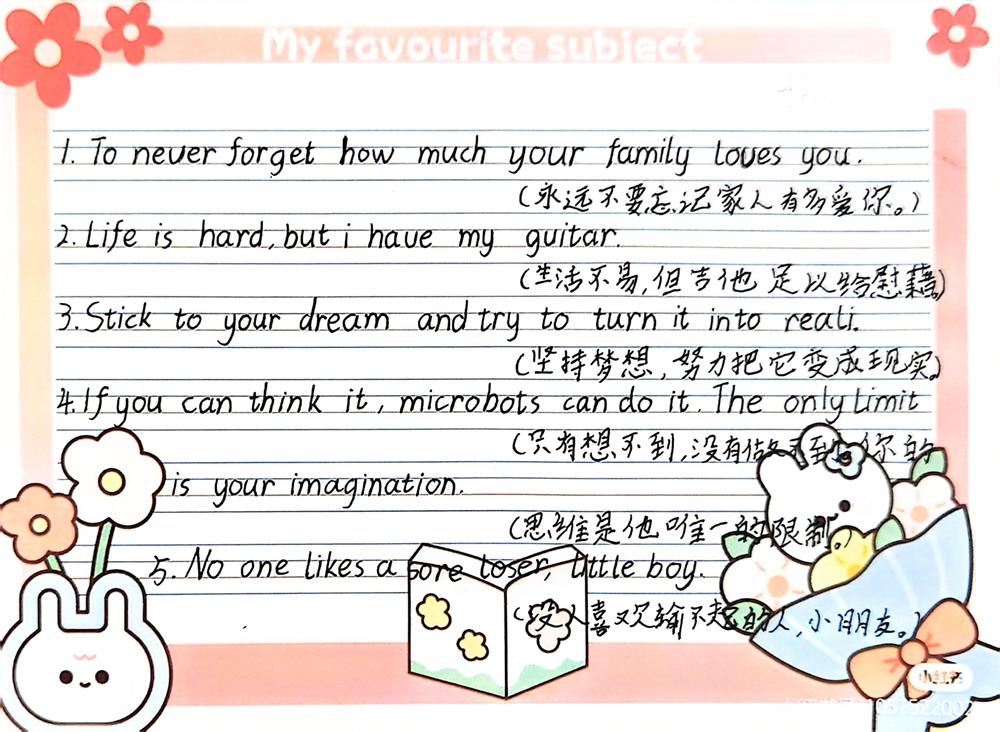 My favourite subject
1. To never forget how much your family loves you.
(永远不要忘记家人有多爱你。)
2. Life is hard, but i have my guitar.
(生活不易,但吉他 足以给慰藉。)
3. Stick to your dream and try to turn it into reali.
(坚持梦想,努力把它变成现实。)
4. If you can think it, microbots can do it. The only Limit
(只有想不到,没有做不到。你的
is your imagination.
(思维是他唯一的限制。)
5. No one likes a sore loser, little boy.
(没人喜欢输不起的人,小朋友。)
小红书